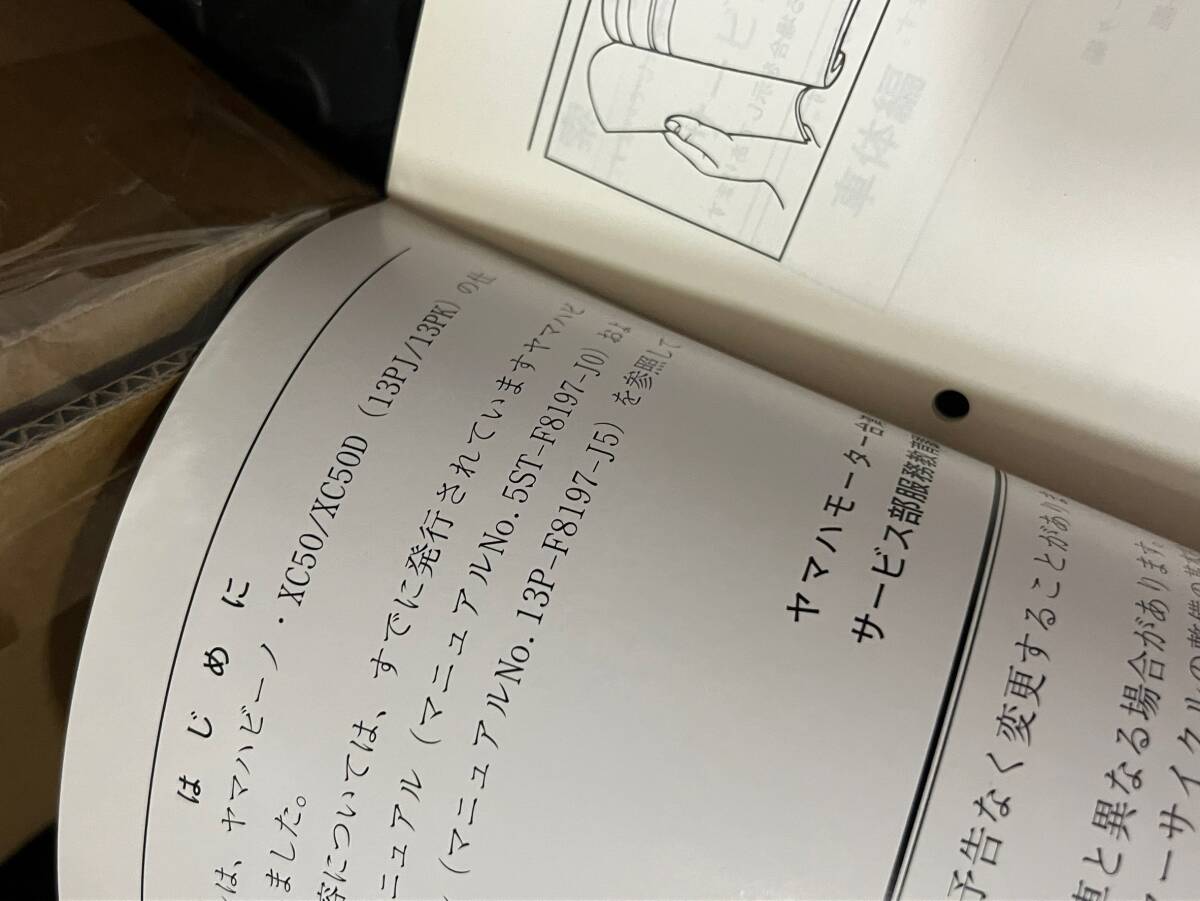 はじめに
は、ヤマハビーノ・XC50/XC50D（13PJ/13PK）の仕
ました。
容については、すでに発行されていますヤマハビ
ニュアル（マニュアルNo.5ST-F8197-J0）およ
（マニュアルNo.13P-F8197-J5）を参照して
ヤマハモーター
サービス部服務教育
予告なく変更することがありま
車と異なる場合があります。
ーサイクルの整備の基
車体編